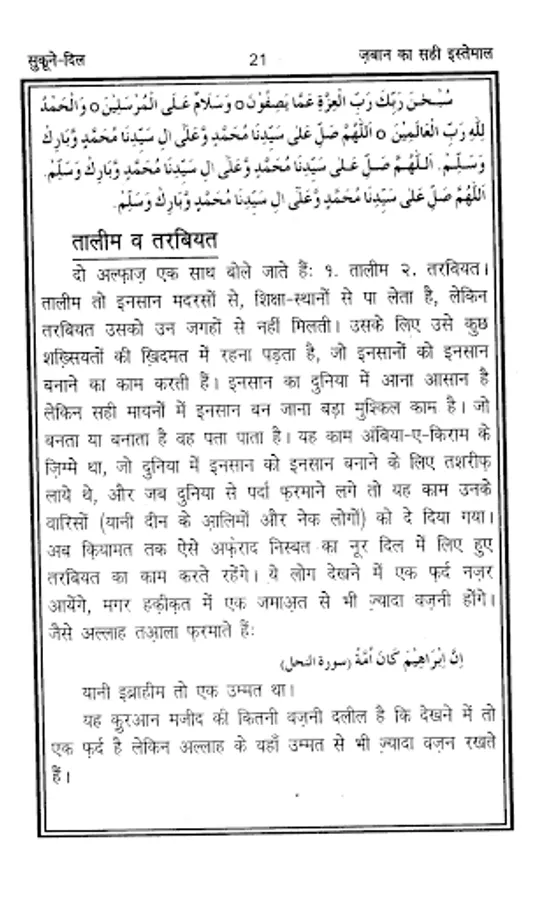 सुकूने-दिल 21 ज़बान का सही इस्तेमाल
سُبْحٰنَ رَبِّكَ رَبِّ الْعِزَّةِ عَمَّا يَصِفُوْنَ ○ وَسَلَامٌ عَلَى الْمُرْسَلِيْنَ ○ وَالْحَمْدُ
لِلّٰهِ رَبِّ الْعَالَمِيْنَ ○ اَللّٰهُمَّ صَلِّ عَلٰى سَيِّدِنَا مُحَمَّدٍ وَّعَلٰى اٰلِ سَيِّدِنَا مُحَمَّدٍ وَّبَارِكْ
وَسَلِّمْ. اَللّٰهُمَّ صَلِّ عَلٰى سَيِّدِنَا مُحَمَّدٍ وَّعَلٰى اٰلِ سَيِّدِنَا مُحَمَّدٍ وَّبَارِكْ وَسَلِّمْ.
اَللّٰهُمَّ صَلِّ عَلٰى سَيِّدِنَا مُحَمَّدٍ وَّعَلٰى اٰلِ سَيِّدِنَا مُحَمَّدٍ وَّبَارِكْ وَسَلِّمْ.
तालीम व तरबियत
दो अल्फ़ाज़ एक साथ बोले जाते हैं: १. तालीम २. तरबियत।
तालीम तो इनसान मदरसों से, शिक्षा-स्थानों से पा लेता है, लेकिन
तरबियत उसको उन जगहों से नहीं मिलती। उसके लिए उसे कुछ
शख़्सियतों की ख़िदमत में रहना पड़ता है, जो इनसानों को इनसान
बनाने का काम करती हैं। इनसान का दुनिया में आना आसान है
लेकिन सही मायनों में इनसान बन जाना बड़ा मुश्किल काम है। जो
बनता या बनाता है वह पता पाता है। यह काम अंबिया-ए-किराम के
ज़िम्मे था, जो दुनिया में इनसान को इनसान बनाने के लिए तशरीफ़
लाये थे, और जब दुनिया से पर्दा फ़रमाने लगे तो यह काम उनके
वारिसों (यानी दीन के आ़लिमों और नेक लोगों) को दे दिया गया।
अब क़ियामत तक ऐसे अफ़राद निस्बत का नूर दिल में लिए हुए
तरबियत का काम करते रहेंगे। ये लोग देखने में एक फ़र्द नज़र
आयेंगे, मगर हक़ीक़त में एक जमाअ़त से भी ज़्यादा वज़नी होंगे।
जैसे अल्लाह तआ़ला फ़रमाते हैं:
اِنَّ اِبْرَاهِيْمَ كَانَ اُمَّةً (سورة النحل)
यानी इब्राहीम तो एक उम्मत था।
यह क़ुरआन मजीद की कितनी वज़नी दलील है कि देखने में तो
एक फ़र्द है लेकिन अल्लाह के यहाँ उम्मत से भी ज़्यादा वज़न रखते
हैं।